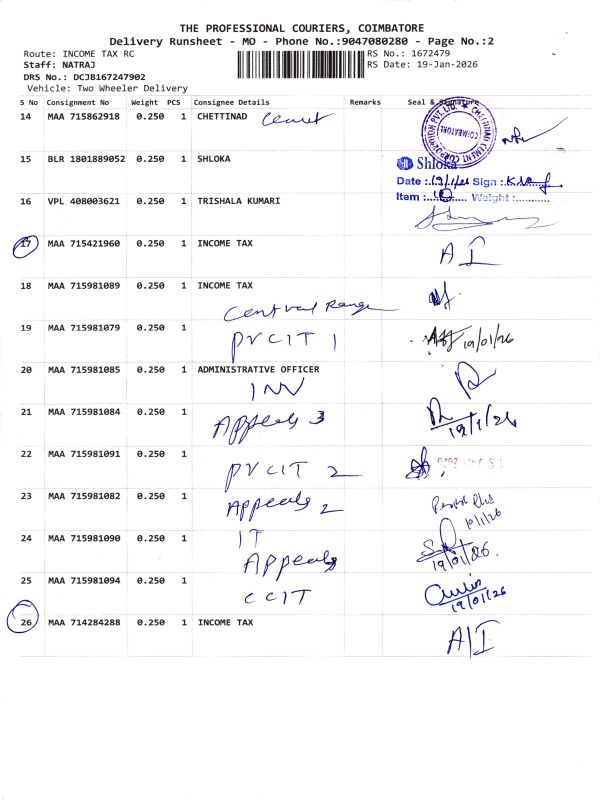 THE PROFESSIONAL COURIERS, COIMBATORE
Delivery Runsheet - MO - Phone No.:9047080280 - Page No.:2
Route: INCOME TAX RC RS No.: 1672479
Staff: NATRAJ RS Date: 19-Jan-2026
DRS No.: DCJB167247902
Vehicle: Two Wheeler Delivery
S No Consignment No Weight PCS Consignee Details Remarks Seal & Signature
14 MAA 715862918 0.250 1 CHETTINAD
CHETTINAD CEMENT CORPORATION PVT. LTD. COIMBATORE
15 BLR 1801889052 0.250 1 SHLOKA
Shloka
Date : 19/1/26 Sign :
Item : 10 Weight :
16 VPL 408003621 0.250 1 TRISHALA KUMARI
17 MAA 715421960 0.250 1 INCOME TAX
A I
18 MAA 715981089 0.250 1 INCOME TAX
Central Range
19 MAA 715981079 0.250 1
PVCIT 1 19/01/26
20 MAA 715981085 0.250 1 ADMINISTRATIVE OFFICER
INV
21 MAA 715981084 0.250 1
Appeals 3 19/1/26
22 MAA 715981091 0.250 1
PVCIT 2
23 MAA 715981082 0.250 1
Appeals 2 19/1/26
24 MAA 715981090 0.250 1 IT
Appeals 19/01/26.
25 MAA 715981094 0.250 1
CCIT 19/01/26
26 MAA 714284288 0.250 1 INCOME TAX
A/I